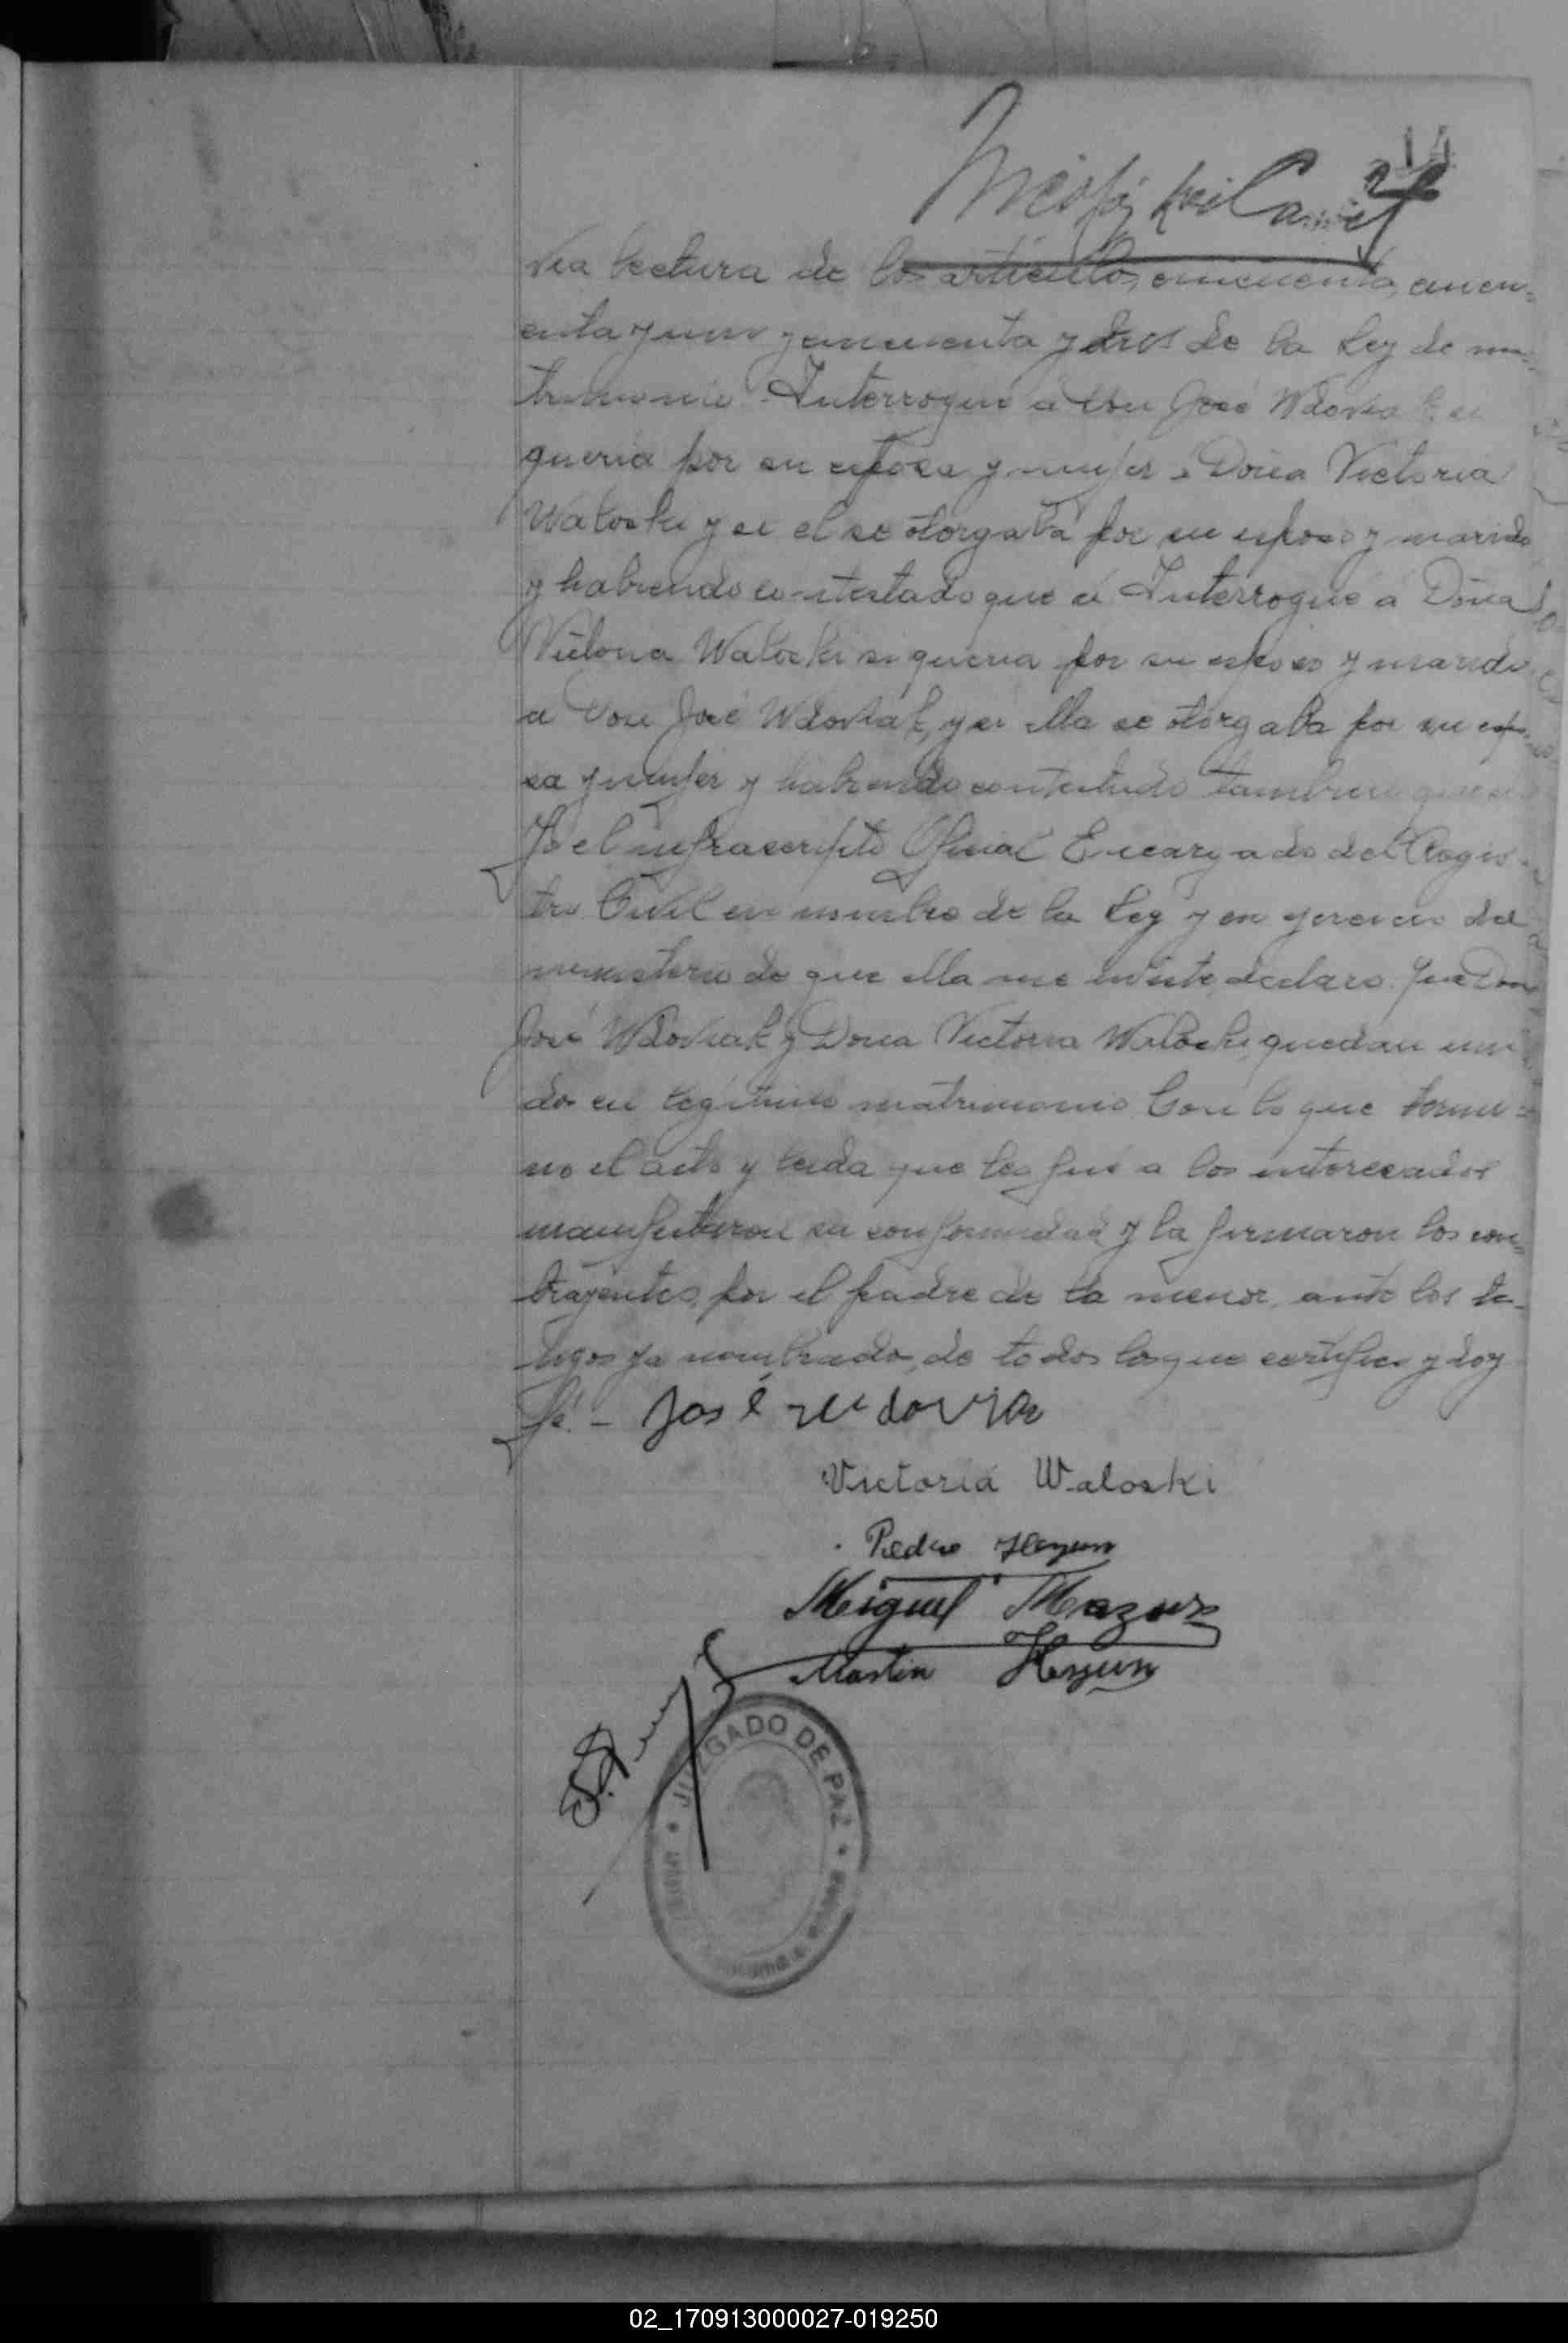 14
via lectura de los articulos, cincuenta, cincu=
enta y uno y cincuenta y dos de la Ley de ma=
trimonio. Interrogué a Don José Wdoviak si
queria por su esposa y mujer a Doña Victoria
Waloski y si el se otorgaba por su esposo y marido
y habiendo contestado que si Interrogué a Doña
Victoria Waloski si queria por su esposo y marido
a Don José Wdoviak, y si ella se otorgaba por su espo
sa y mujer y habiendo contestado tambien que si
Yo el infrascripto Oficial Encargado del Regis-
tro Civil en nombre de la Ley y en ejercicio del
ministerio de que ella me inviste, declaro. Que Don
José Wdoviak y Doña Victoria Waloski, quedan uni
dos en legitimo matrimonio. Con lo que termi=
no el acto y leida que les fué a los interesados
manifestaron su conformidad y la firmaron los con=
trayentes, por el padre de la menor, ante los te-
tigos ya nombrados, de todos los que certifico y doy
fé. - José
Victoria Waloski
Pedro
Miguel Mazur
Martin
JUZGADO DE PAZ